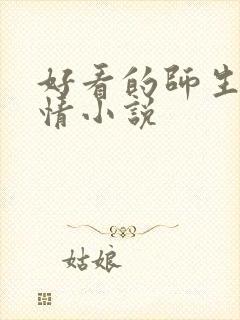 好看的师生
情小说
姑娘